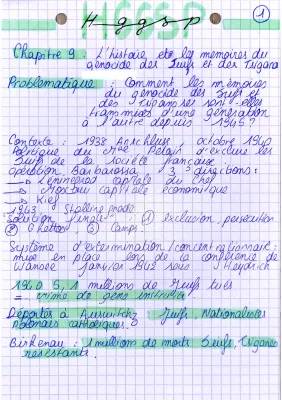 HGGSP
1
Hggsp
Chapitre 9 : L'histoire et les mémoires du
génocide des Juifs et des Tsigane
Problématique : Comment les mémoires
du génocide des Juif et
des Tsiganes sont-elles
transmises d'une génération
à l'autre depuis 1945?
Contexte : 1938 Anschluss, octobre 1940
Politique du Mal Pétain d'exclure les
Juifs de la société française
opération Barbarossa : 3 directions :
→ Léningrad capitale du chef
→ Moscou capitale économique
→ Kiev
1943 Stalingrad
Solution finale : ① exclusion, persécution
② Ghettos ③ Camps
Système d'extermination/concentrationnaire :
mise en place lors de la conférence de
Wansee janvier 1942 sous Heydrich
1940 5,1 millions de Juifs tués
= crime de
Déportés à Auswitchz : Juifs, Nationalistes
polonais catholiques.
Birkenau : 1 million de morts Juifs, Tsiganes
résistants.